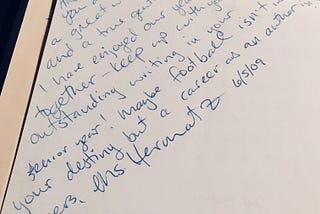 you a
a great w
and a true g
I have enjoyed our yea
together - keep up with yo
outstanding writing in your
senior year! Maybe football isn't
your destiny but a career as an author is
Ms Kermat 6/5/09